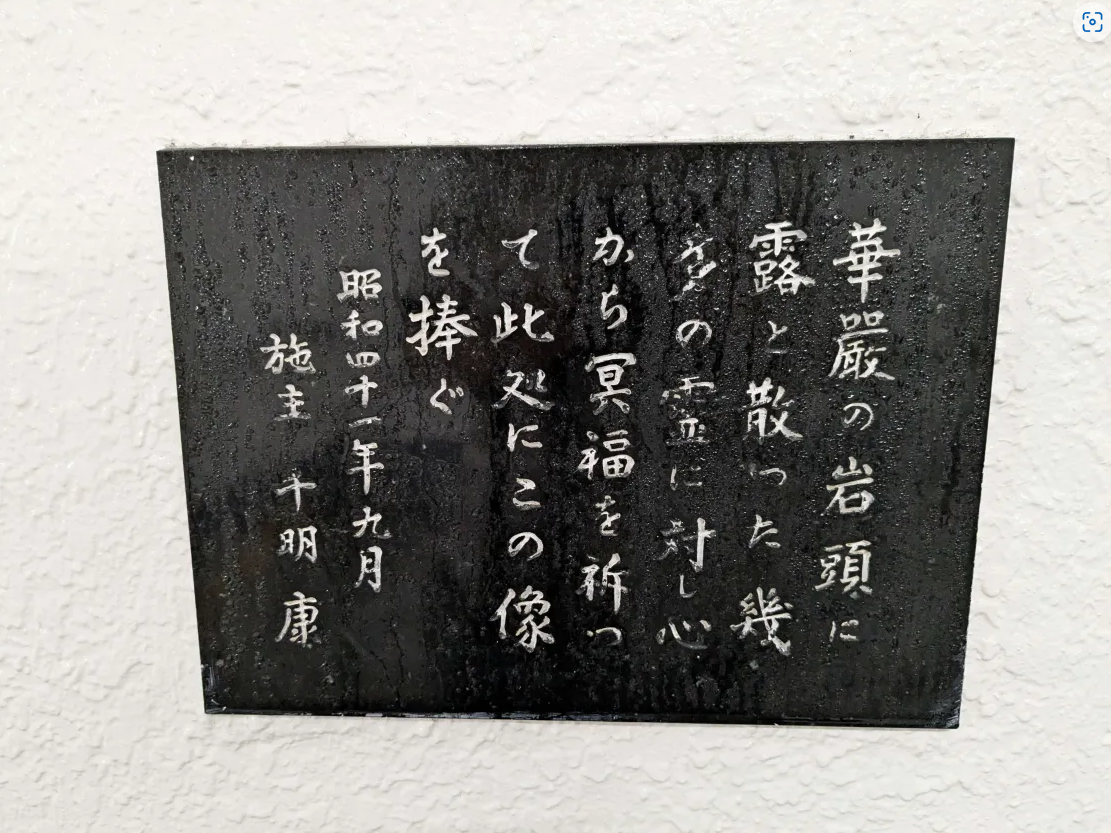 華嚴の岩頭に
露と散つた幾
多の霊に対し心
から冥福を祈つ
て此処にこの像
を捧ぐ
昭和四十一年九月
施主 千明康